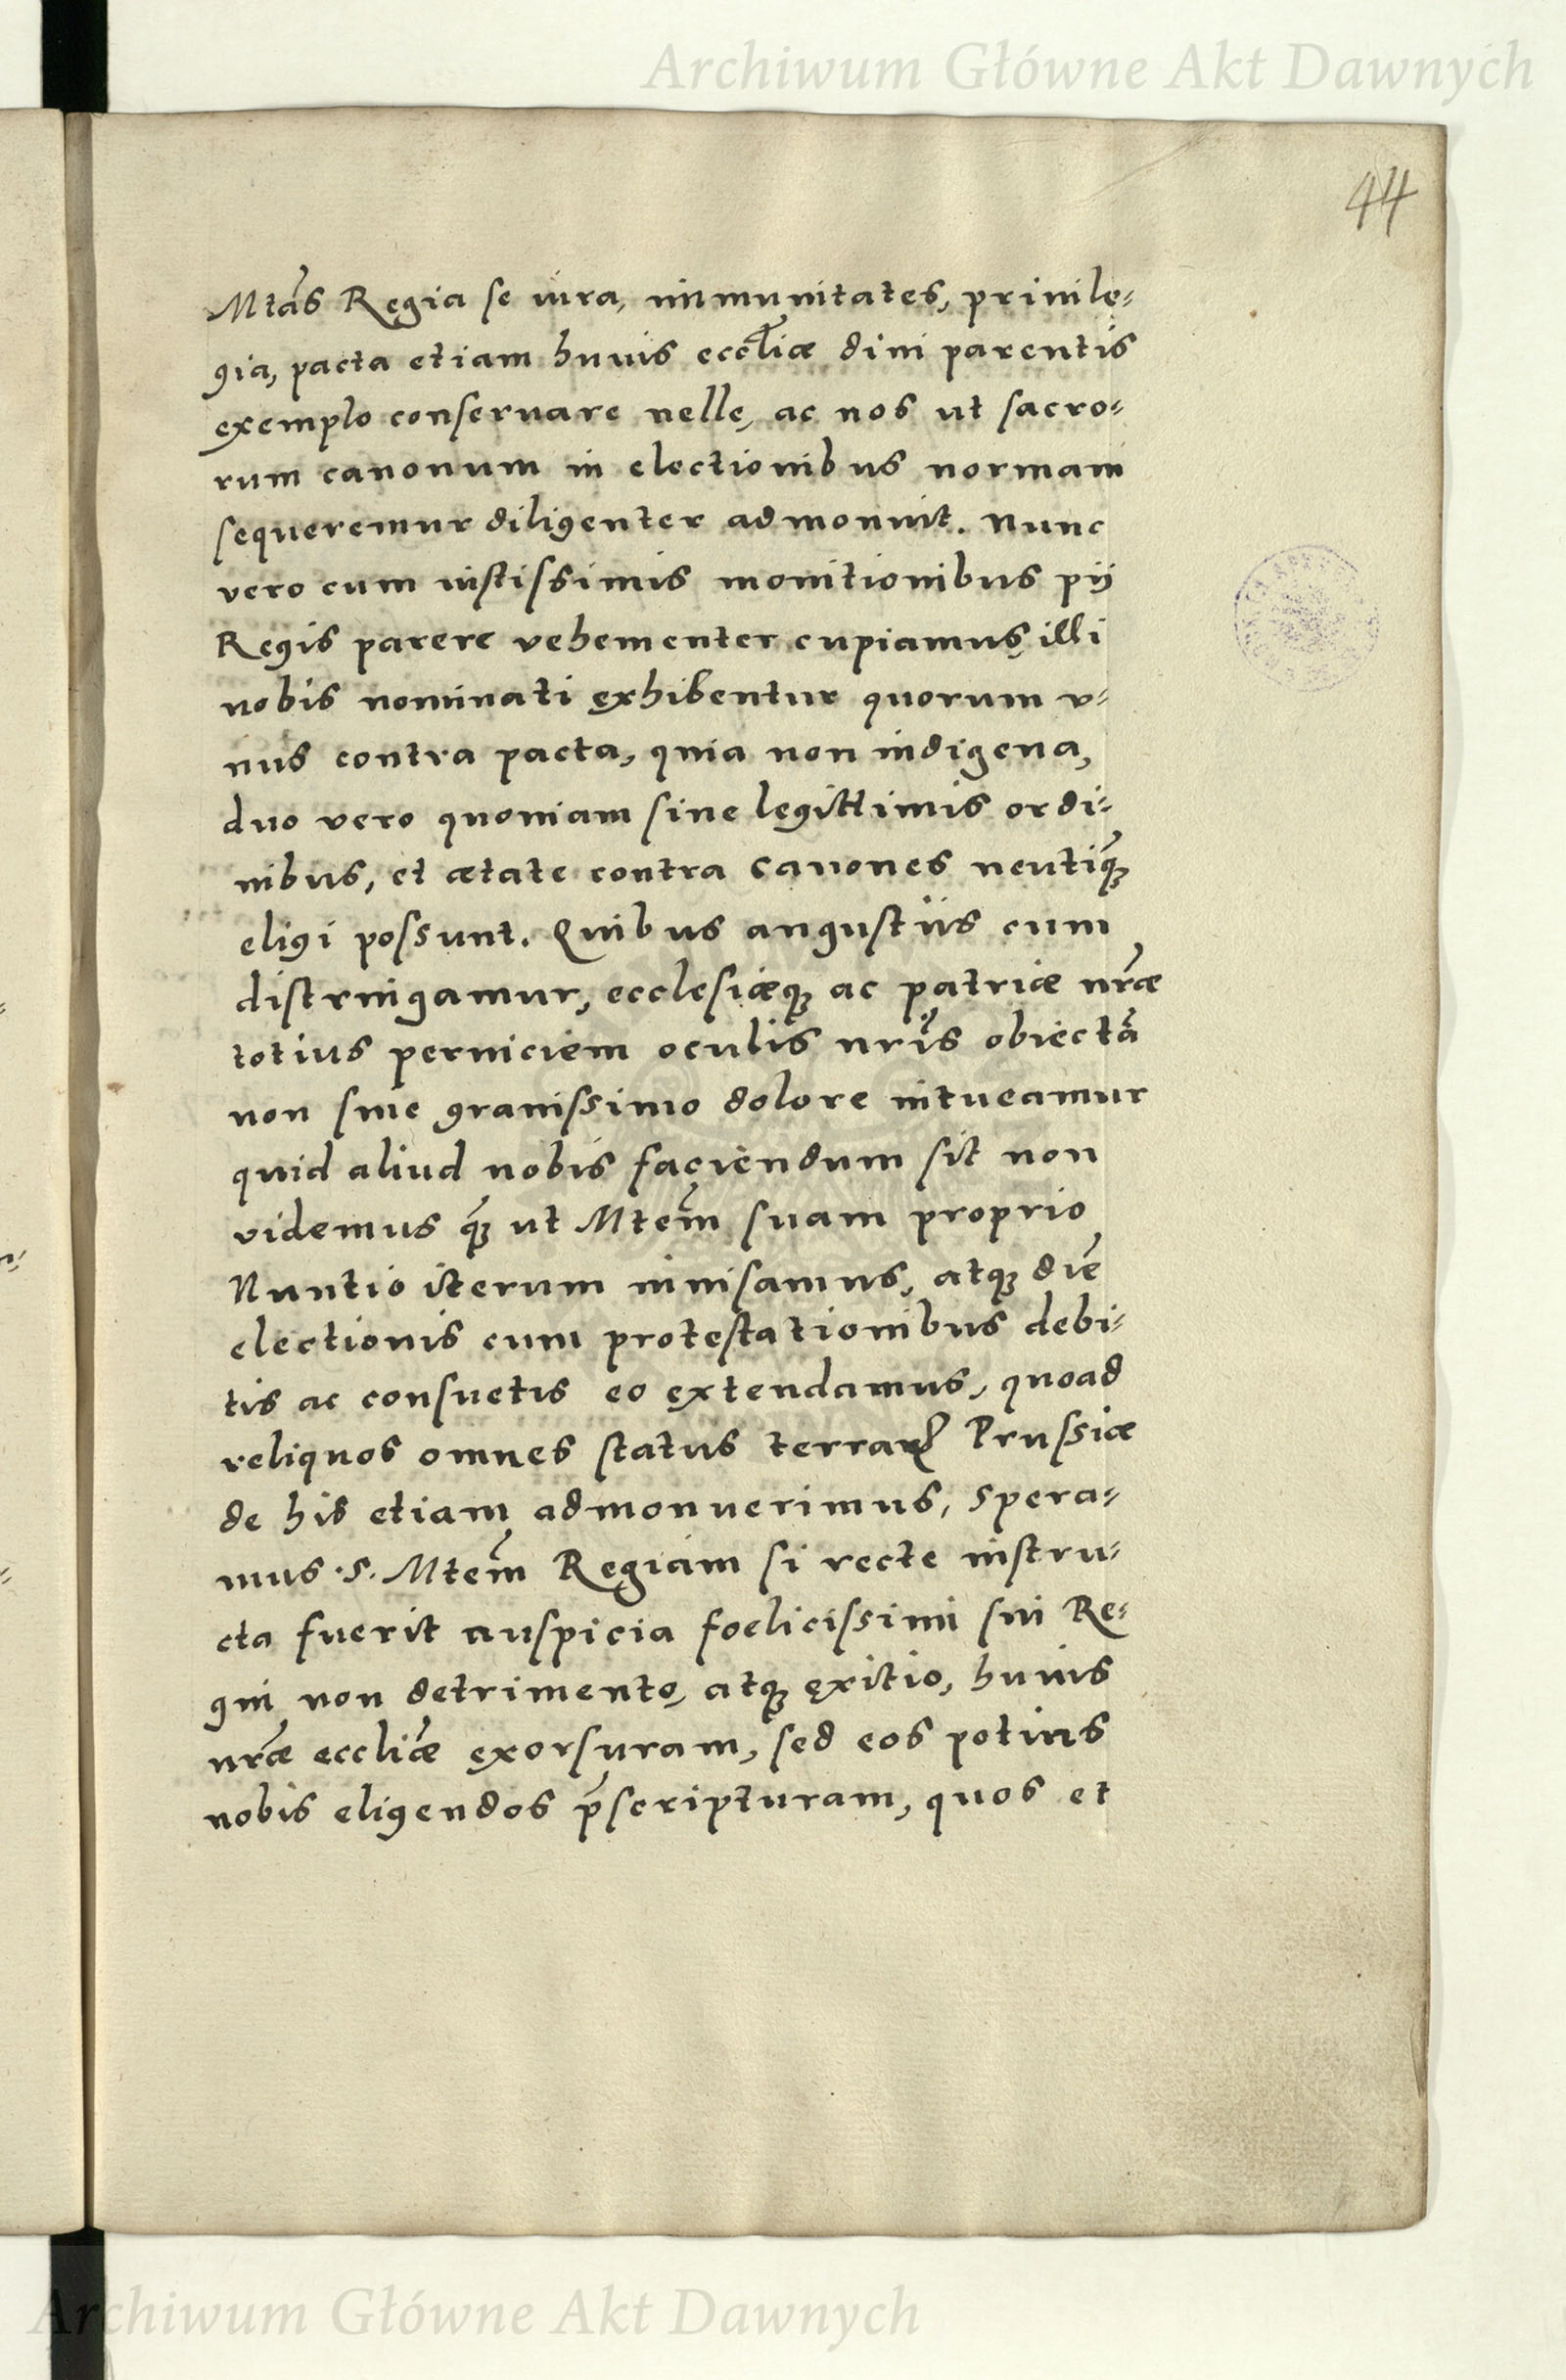 Archiwum Główne Akt Dawnych
44
Mtãs Regia se iura, immunitates, priuile-
gia, pacta etiam huius eccl̃iæ diui parentis
exemplo conseruare uelle, ac nos ut sacro-
rum canonum in electionibus normam
sequeremur diligenter admonuit. Nunc
vero cum iustissimis monitionibus pij
Regis parere vehementer cupiamus, illi
nobis nominati exhibentur quorum v-
nus contra pacta, quia non indigena,
duo vero quoniam sine legittimis ordi-
nibus, et ætate contra canones neutiq̃
eligi possunt. Quibus angustijs cum
distringamur, ecclesiæq; ac patriæ nr̃æ
totius perniciem oculis nr̃is obiectã
non sine grauissimo dolore intueamur
quid aliud nobis faciendum sit non
videmus q̃ ut Mtem̃ suam proprio
Nuntio iterum inuisamus, atq; diẽ
electionis cum protestationibus debi-
tis ac consuetis eo extendamus, quoad
reliquos omnes status terraꝝ Prussiæ
de his etiam admonuerimus, spera-
mus .S. Mtem̃ Regiam si recte instru-
cta fuerit auspicia foelicissimi sui Re-
gni non detrimento, atq; exitio, huius
nr̃æ eccliæ̃ exorsuram, sed eos potius
nobis eligendos p̃scripturam, quos et
Archiwum Główne Akt Dawnych